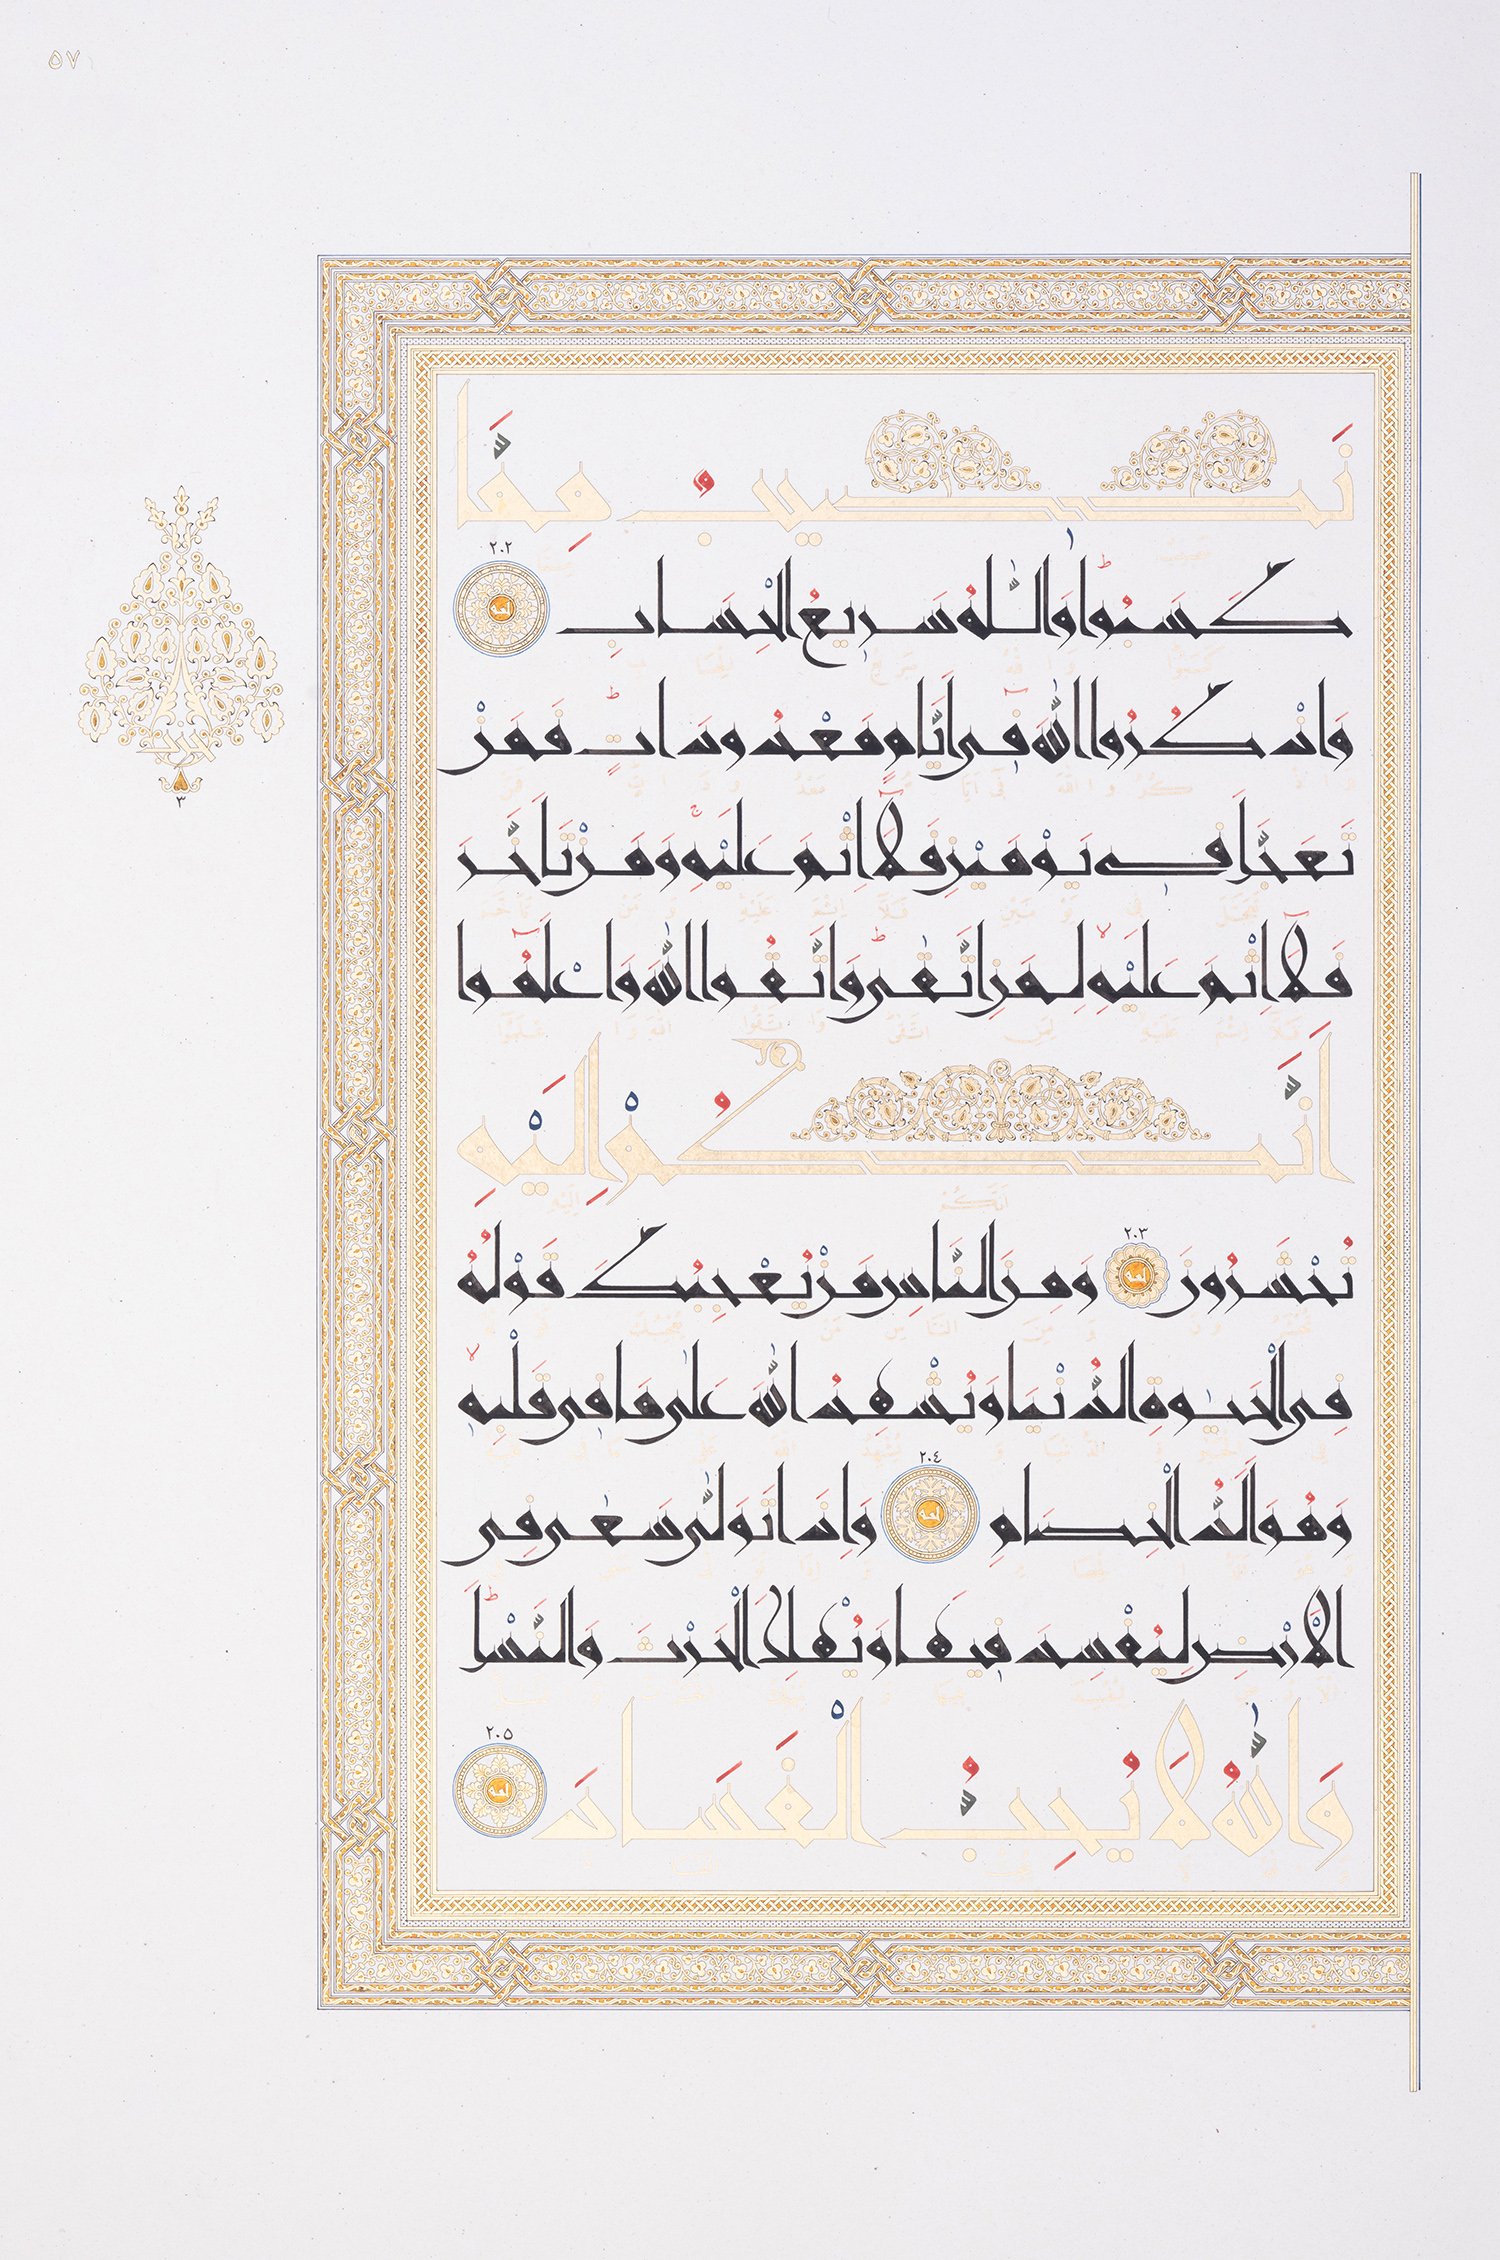 ٥٧
نَصِيبٌ مِمَّا
كَسَبُوا وَاللّٰهُ سَرِيعُ الْحِسَابِ ٢٠٢
وَاذْكُرُوا اللّٰهَ فِي اَيَّامٍ مَعْدُودَاتٍ فَمَنْ
تَعَجَّلَ فِي يَوْمَيْنِ فَلَا اِثْمَ عَلَيْهِ وَمَنْ تَاَخَّرَ
فَلَا اِثْمَ عَلَيْهِ لِمَنِ اتَّقٰى وَاتَّقُوا اللّٰهَ وَاعْلَمُوا
اَنَّكُمْ اِلَيْهِ
تُحْشَرُونَ ٢٠٣ وَمِنَ النَّاسِ مَنْ يُعْجِبُكَ قَوْلُهُ
فِي الْحَيٰوةِ الدُّنْيَا وَيُشْهِدُ اللّٰهَ عَلٰى مَا فِي قَلْبِهِ
وَهُوَ اَلَدُّ الْخِصَامِ ٢٠٤ وَاِذَا تَوَلّٰى سَعٰى فِي
الْاَرْضِ لِيُفْسِدَ فِيهَا وَيُهْلِكَ الْحَرْثَ وَالنَّسْلَ
وَاللّٰهُ لَا يُحِبُّ الْفَسَادَ ٢٠٥
حزب
٣